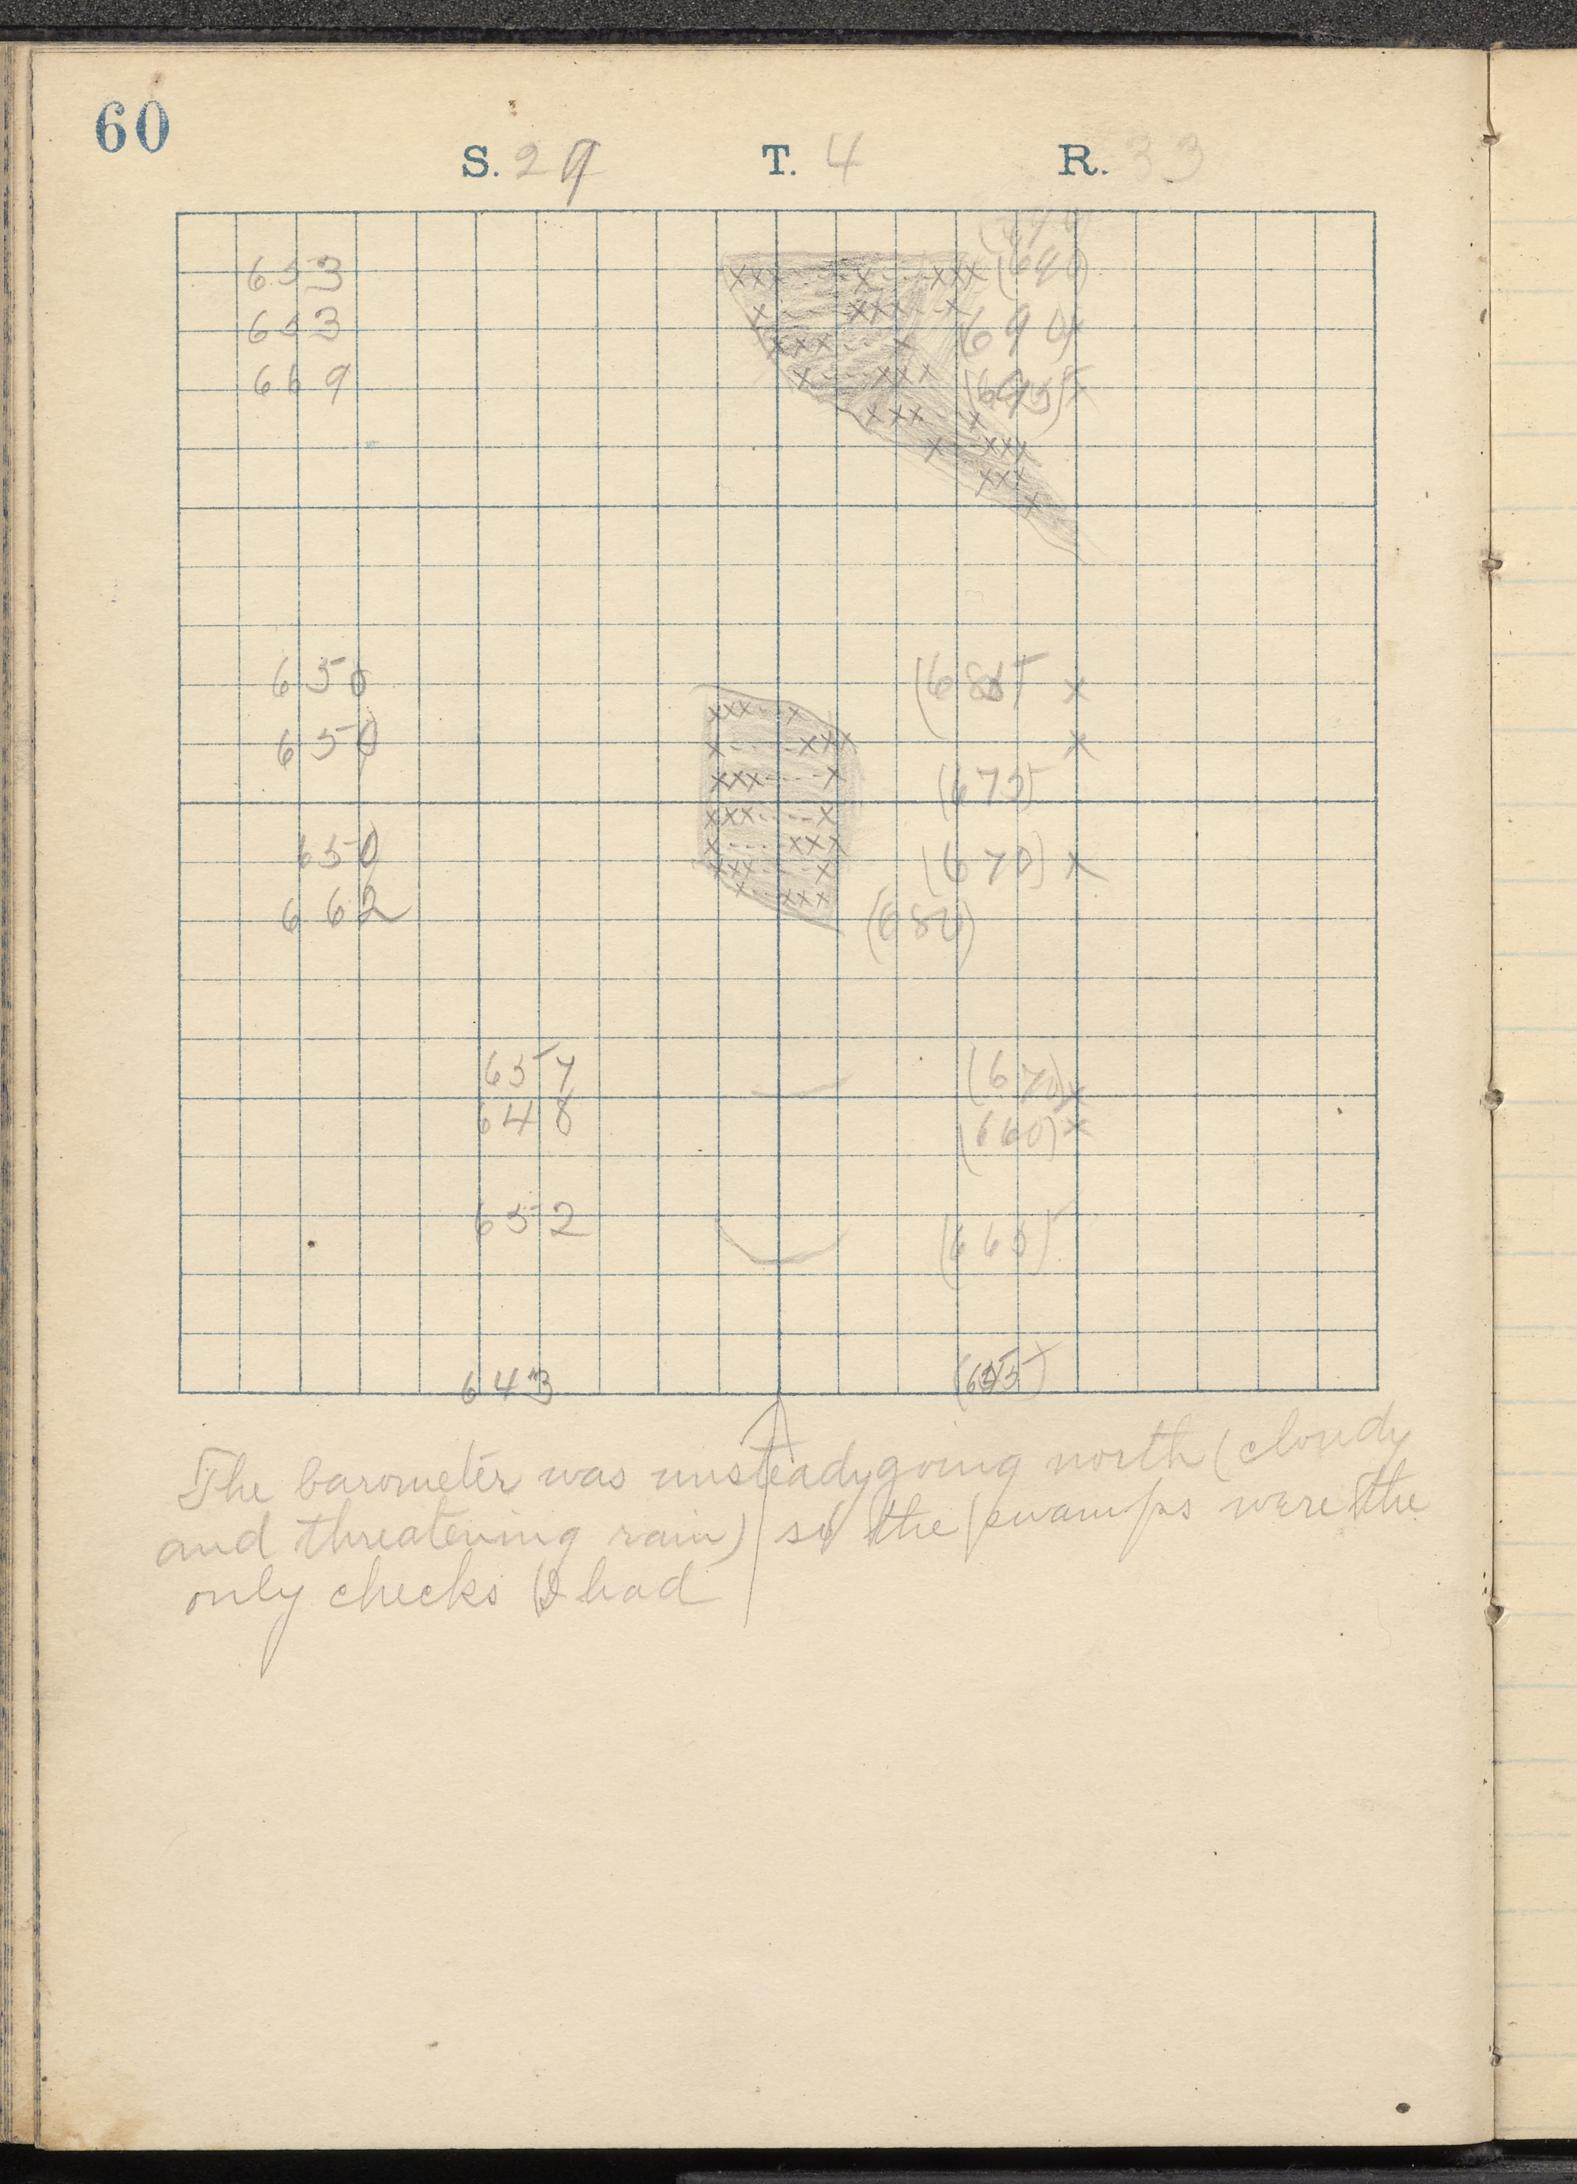 60
S. 29 T. 4 R. 33
653 (690)
653 (690) x
669 (695) x
650 (685 x
650 x
(675)
650 (670) x
662 (680)
657 (670) x
648 (660) x
652 (665)
643
The barometer was unsteady going north (cloudy
and threatening rain) so the swamps were the
only checks I had